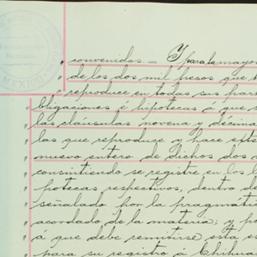 convenidas — Y para la mayor
de los dos mil pesos que
reproduce en todas sus par
bligaciones é hipotecas á que
las cláusulas novena y décima
las que reproduce y hace
nuevo entero de dichos dos
consintiendo se registre en los
potecas respectivos, dentro de
señalado por la pragmática
acordado de la materia; y
á que debe remitirse esta
para su registro á Chihua